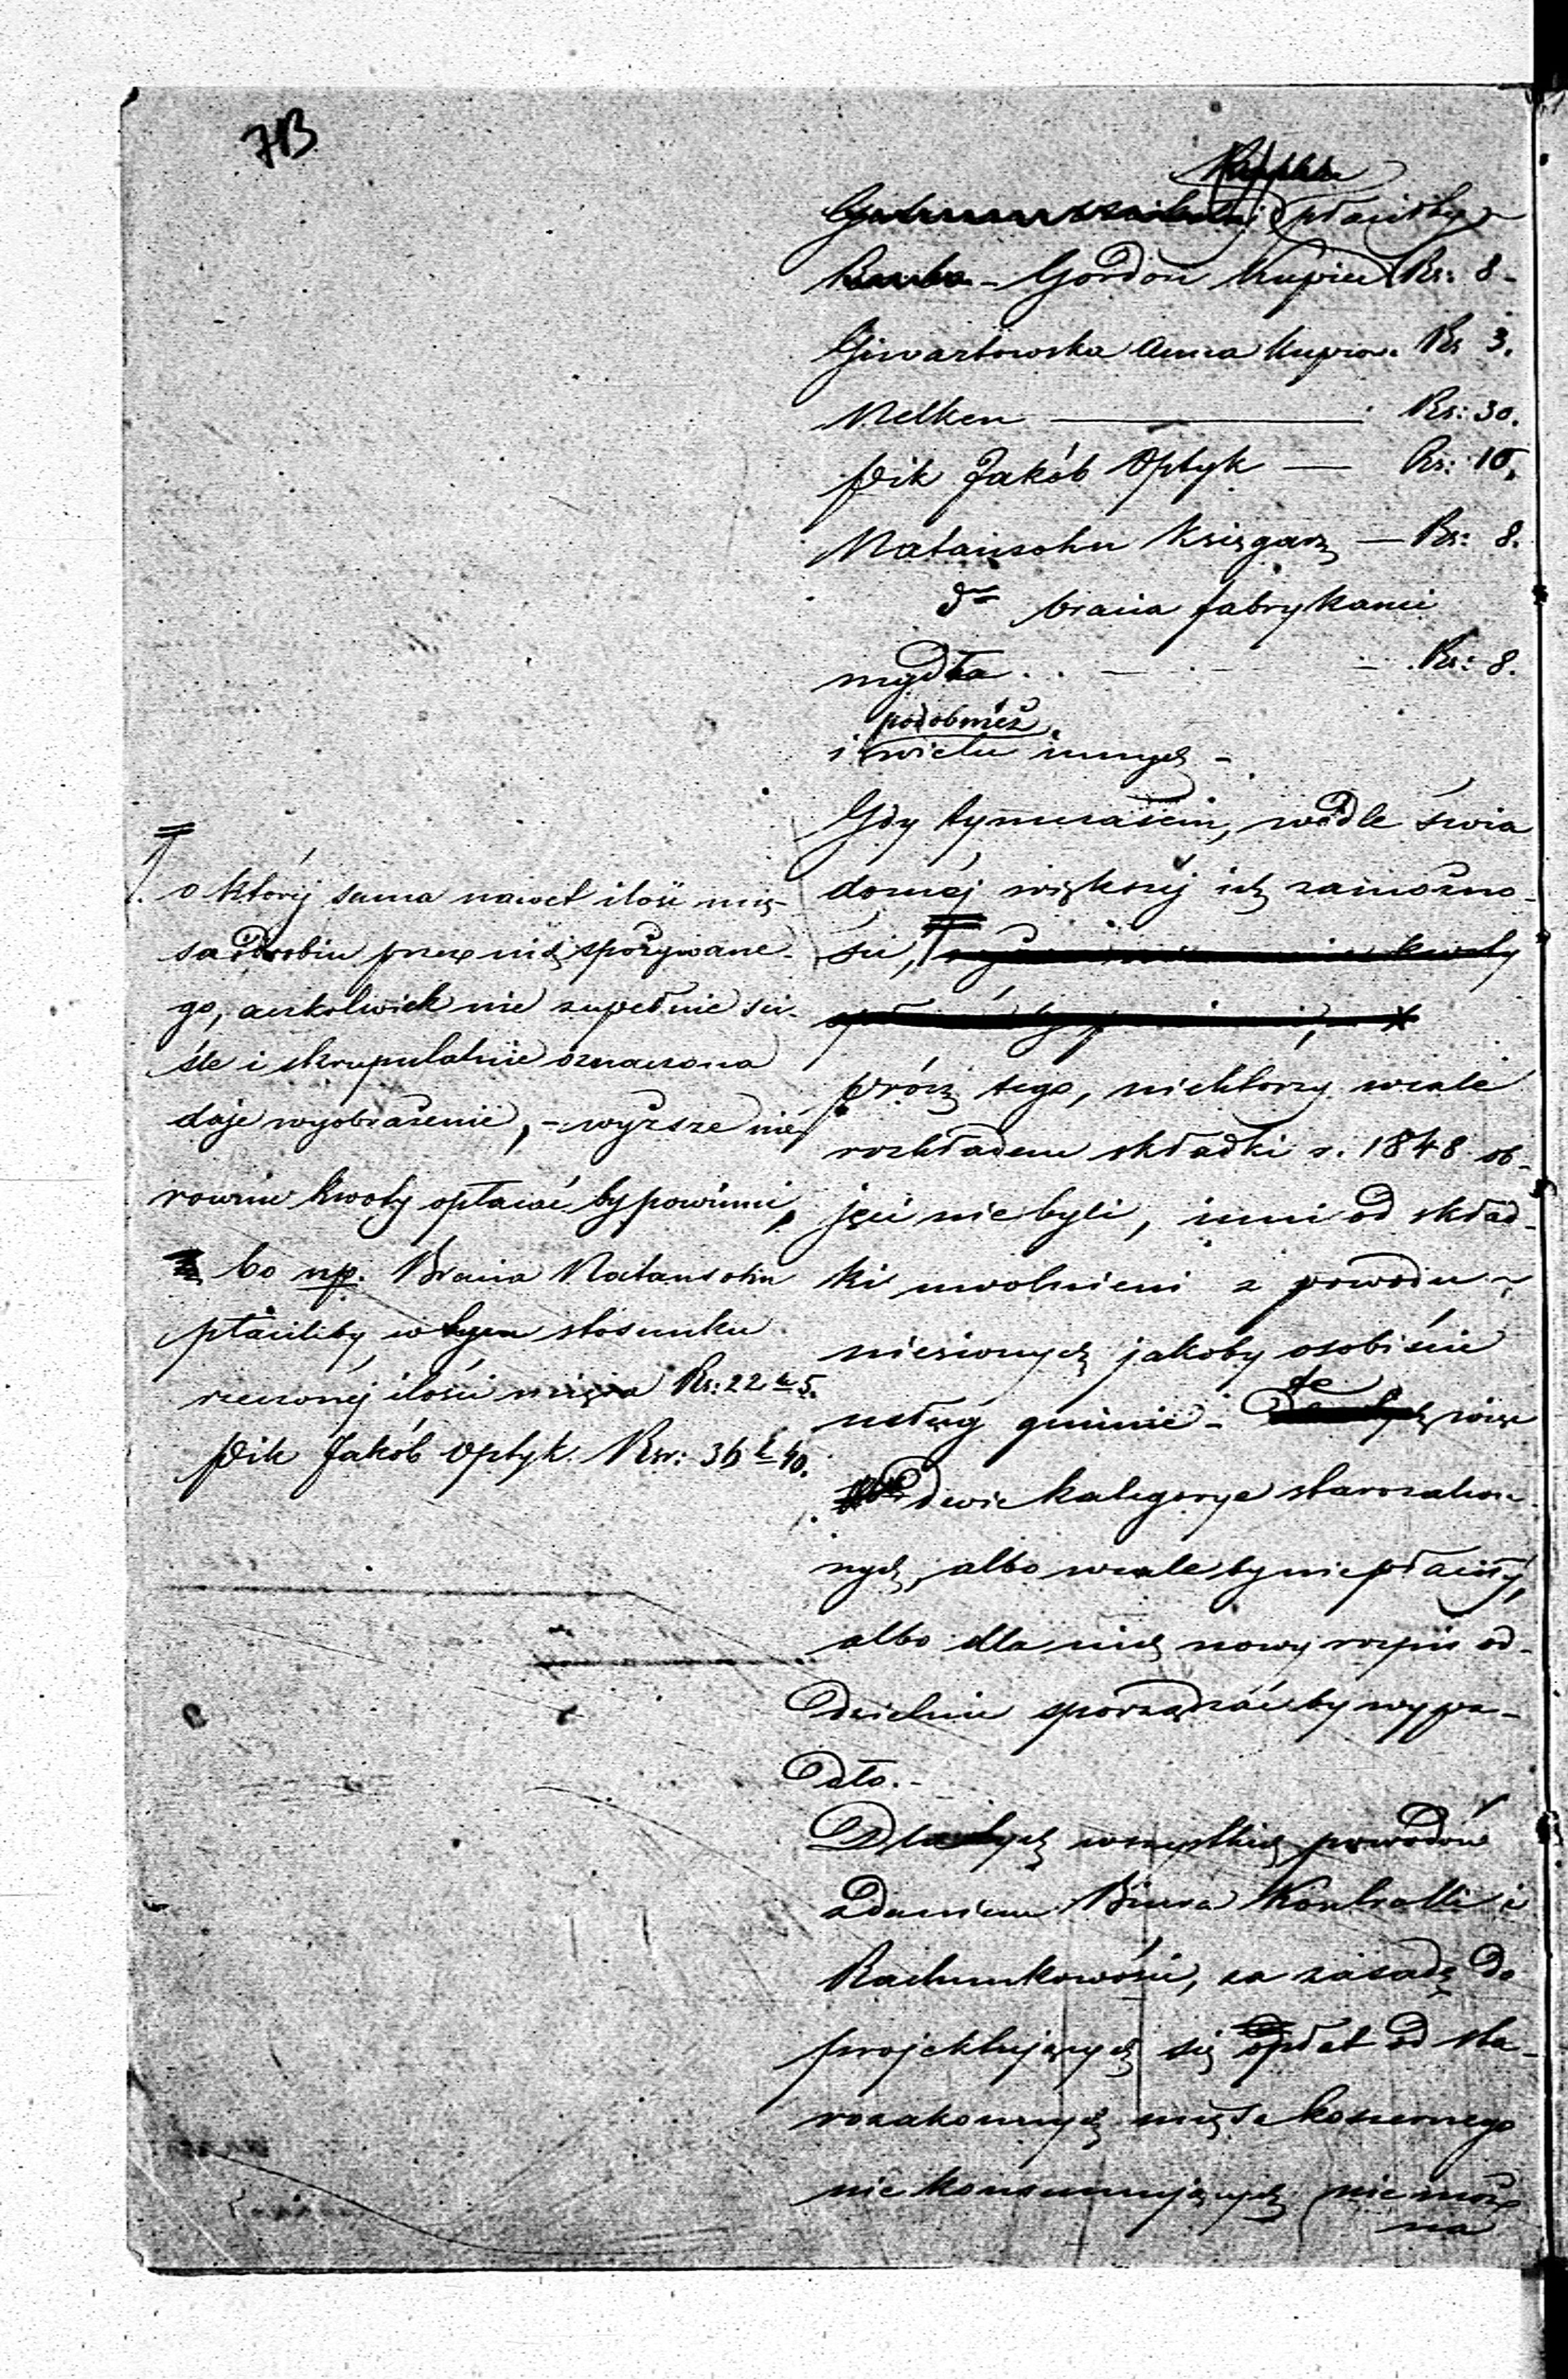 713
płaciłby
Gordon Kupiec Rs: 8-
Giwartowska Anna Kupcow. Rs 3.
Nelken — Rs: 30.
Pik Jakób Optyk — Rs: 15.
Natansohn Księgarz — Rs: 8.
dto bracia fabrykanci
mydła . . — Rs: 8.
podobnież
i wielu innych -
Gdy tymczasem, wedle świa
doméj większéj ich zamożno-
ści,
prócz tego, niektórzy wcale
rozkładem składki r. 1848 ob-
jęci nie byli, inni od skład-
ki uwolnieni z powodu
niesionych jakoby osobiście
usług gminie - te więc
dwie kategorye starozakon
nych, albo wcale by nie płaciły,
albo dla nich nowy rozpis od-
dzielnie sporządzaćby wypa-
dło.-
Dla tych wszystkich powodów
zdaniem Biura Kontrolli i
Rachunkowości, za zasadę do
projektujących się opłat od sta-
rozakonnych mięsa koszernego
nie konsumujących nie moż
na
o któréj suma nawet ilości mię-
sa i drobiu przez nich spożywane-
go, aczkolwiek nie zupełnie ści-
śle i skrupulatnie oznaczona
daje wyobrażenie, - wyższe nie
równie kwoty opłacać by powinni,
bo np. Bracia Natansohn
płaciliby w tym stosunku
rzeczonéj ilości mięsa Rs: 22 k 5.
Pik Jakób Optyk. Rsr: 36 k 40.